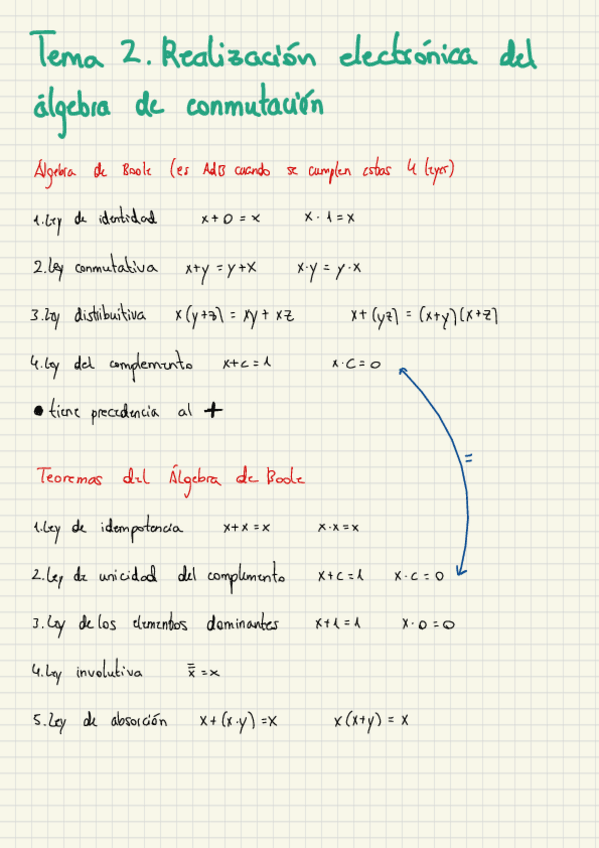 Tema 2. Realización electrónica del
álgebra de conmutación
Álgebra de Boole (es AdB cuando se cumplen estas 4 leyes)
1. Ley de identidad x+0=x x·1=x
2. Ley conmutativa x+y=y+x x·y=y·x
3. Ley distribuitiva x(y+z)=xy+xz x+(yz)=(x+y)(x+z)
4. Ley del complemento x+c=1 x·c=0
● tiene precedencia al +
=
Teoremas del Álgebra de Boole
1. Ley de idempotencia x+x=x x·x=x
2. Ley de unicidad del complemento x+c=1 x·c=0
3. Ley de los elementos dominantes x+1=1 x·0=0
4. Ley involutiva x̿=x
5. Ley de absorción x+(x·y)=x x(x+y)=x